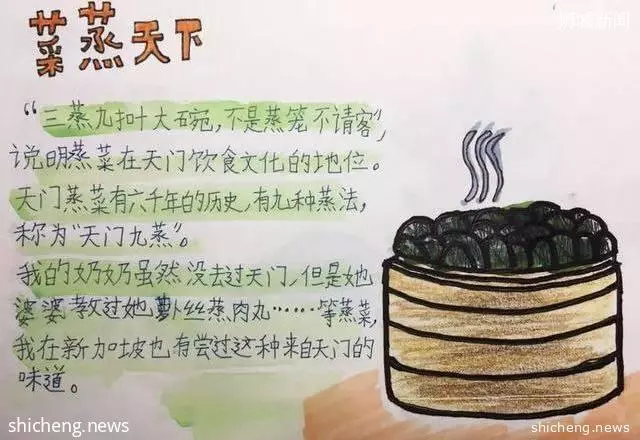 菜蒸天下
狮城新闻
“三蒸九扣十大碗，不是蒸笼不请客”，
说明蒸菜在天门饮食文化的地位。
天门蒸菜有六千年的历史，有九种蒸法，
称为“天门九蒸”。
我的奶奶虽然没去过天门，但是她
婆婆教过她萝卜丝蒸肉丸……等蒸菜，
我在新加坡也有尝过这种来自天门的
味道。
shicheng.news
shicheng.news